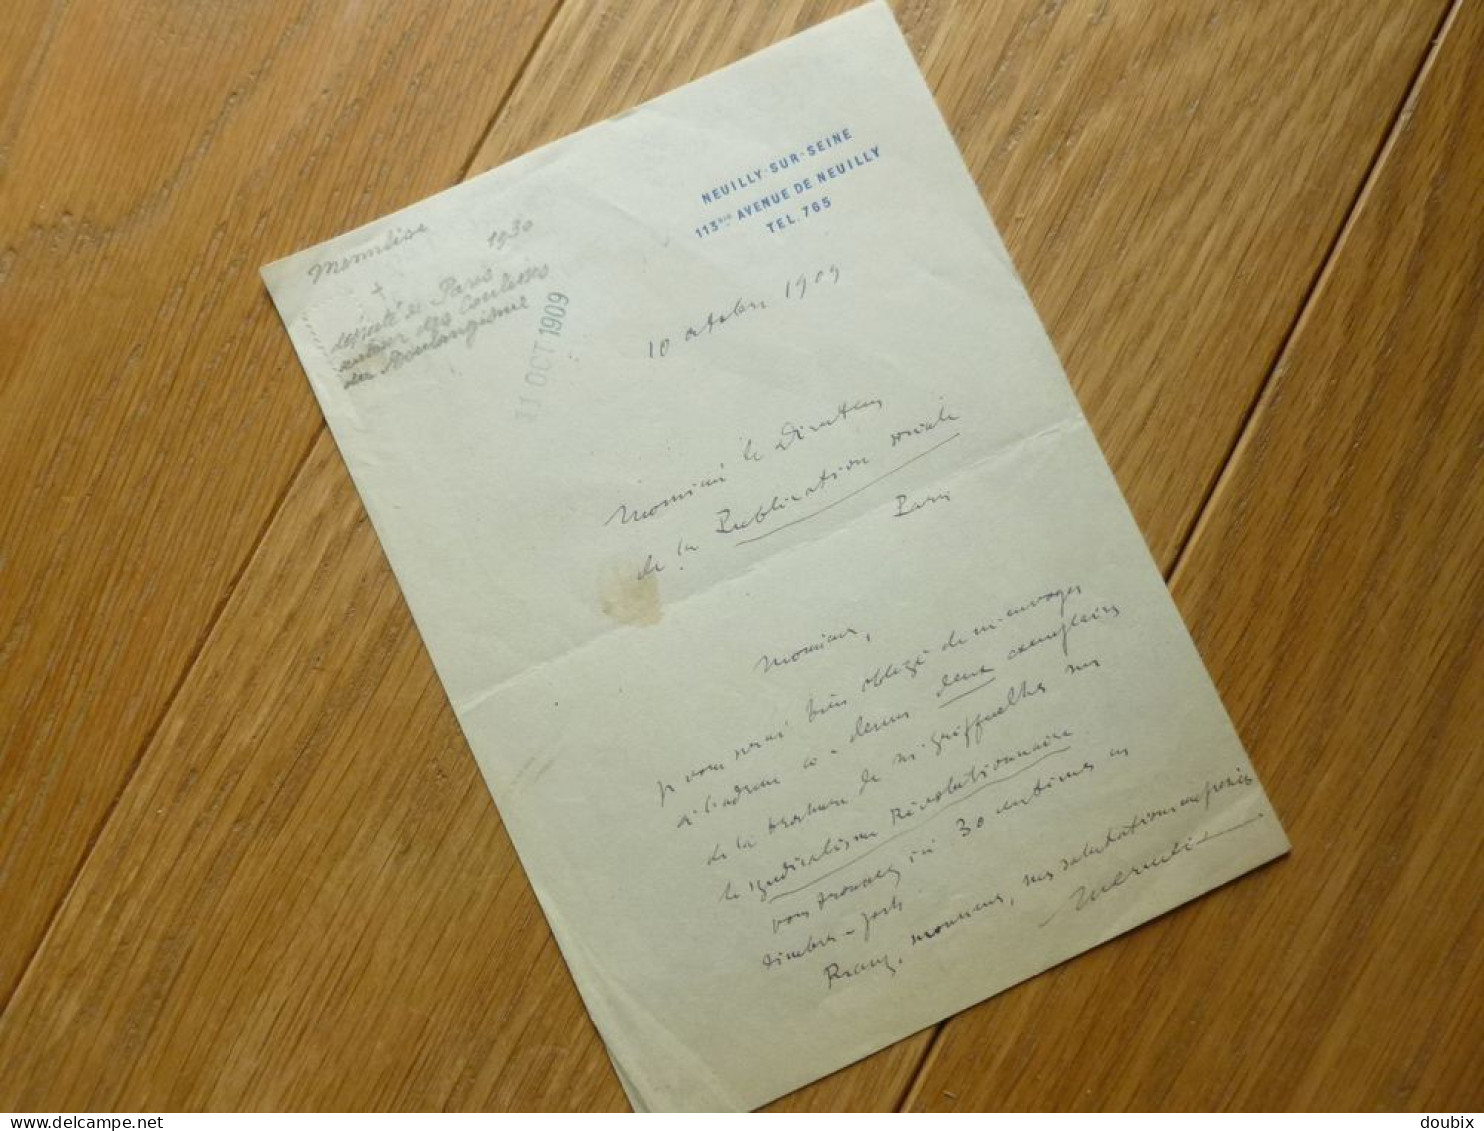 NEUILLY-SUR-SEINE
113BIS AVENUE DE NEUILLY
TEL. 765
1930
député de Paris
auteur des Coulisses
du Boulangisme
11 OCT 1909
10 octobre 1909
Monsieur le Directeur
de la Publication sociale
Paris
Monsieur,
Je vous serai bien obligé de m'envoyer
à l'adresse ci-dessus deux exemplaires
de la brochure de M. Griffuelhes sur
le syndicalisme Révolutionnaire
vous trouverez ici 30 centimes en
timbres-poste
Recevez, monsieur, mes salutations empressées
Mermeix
doubix